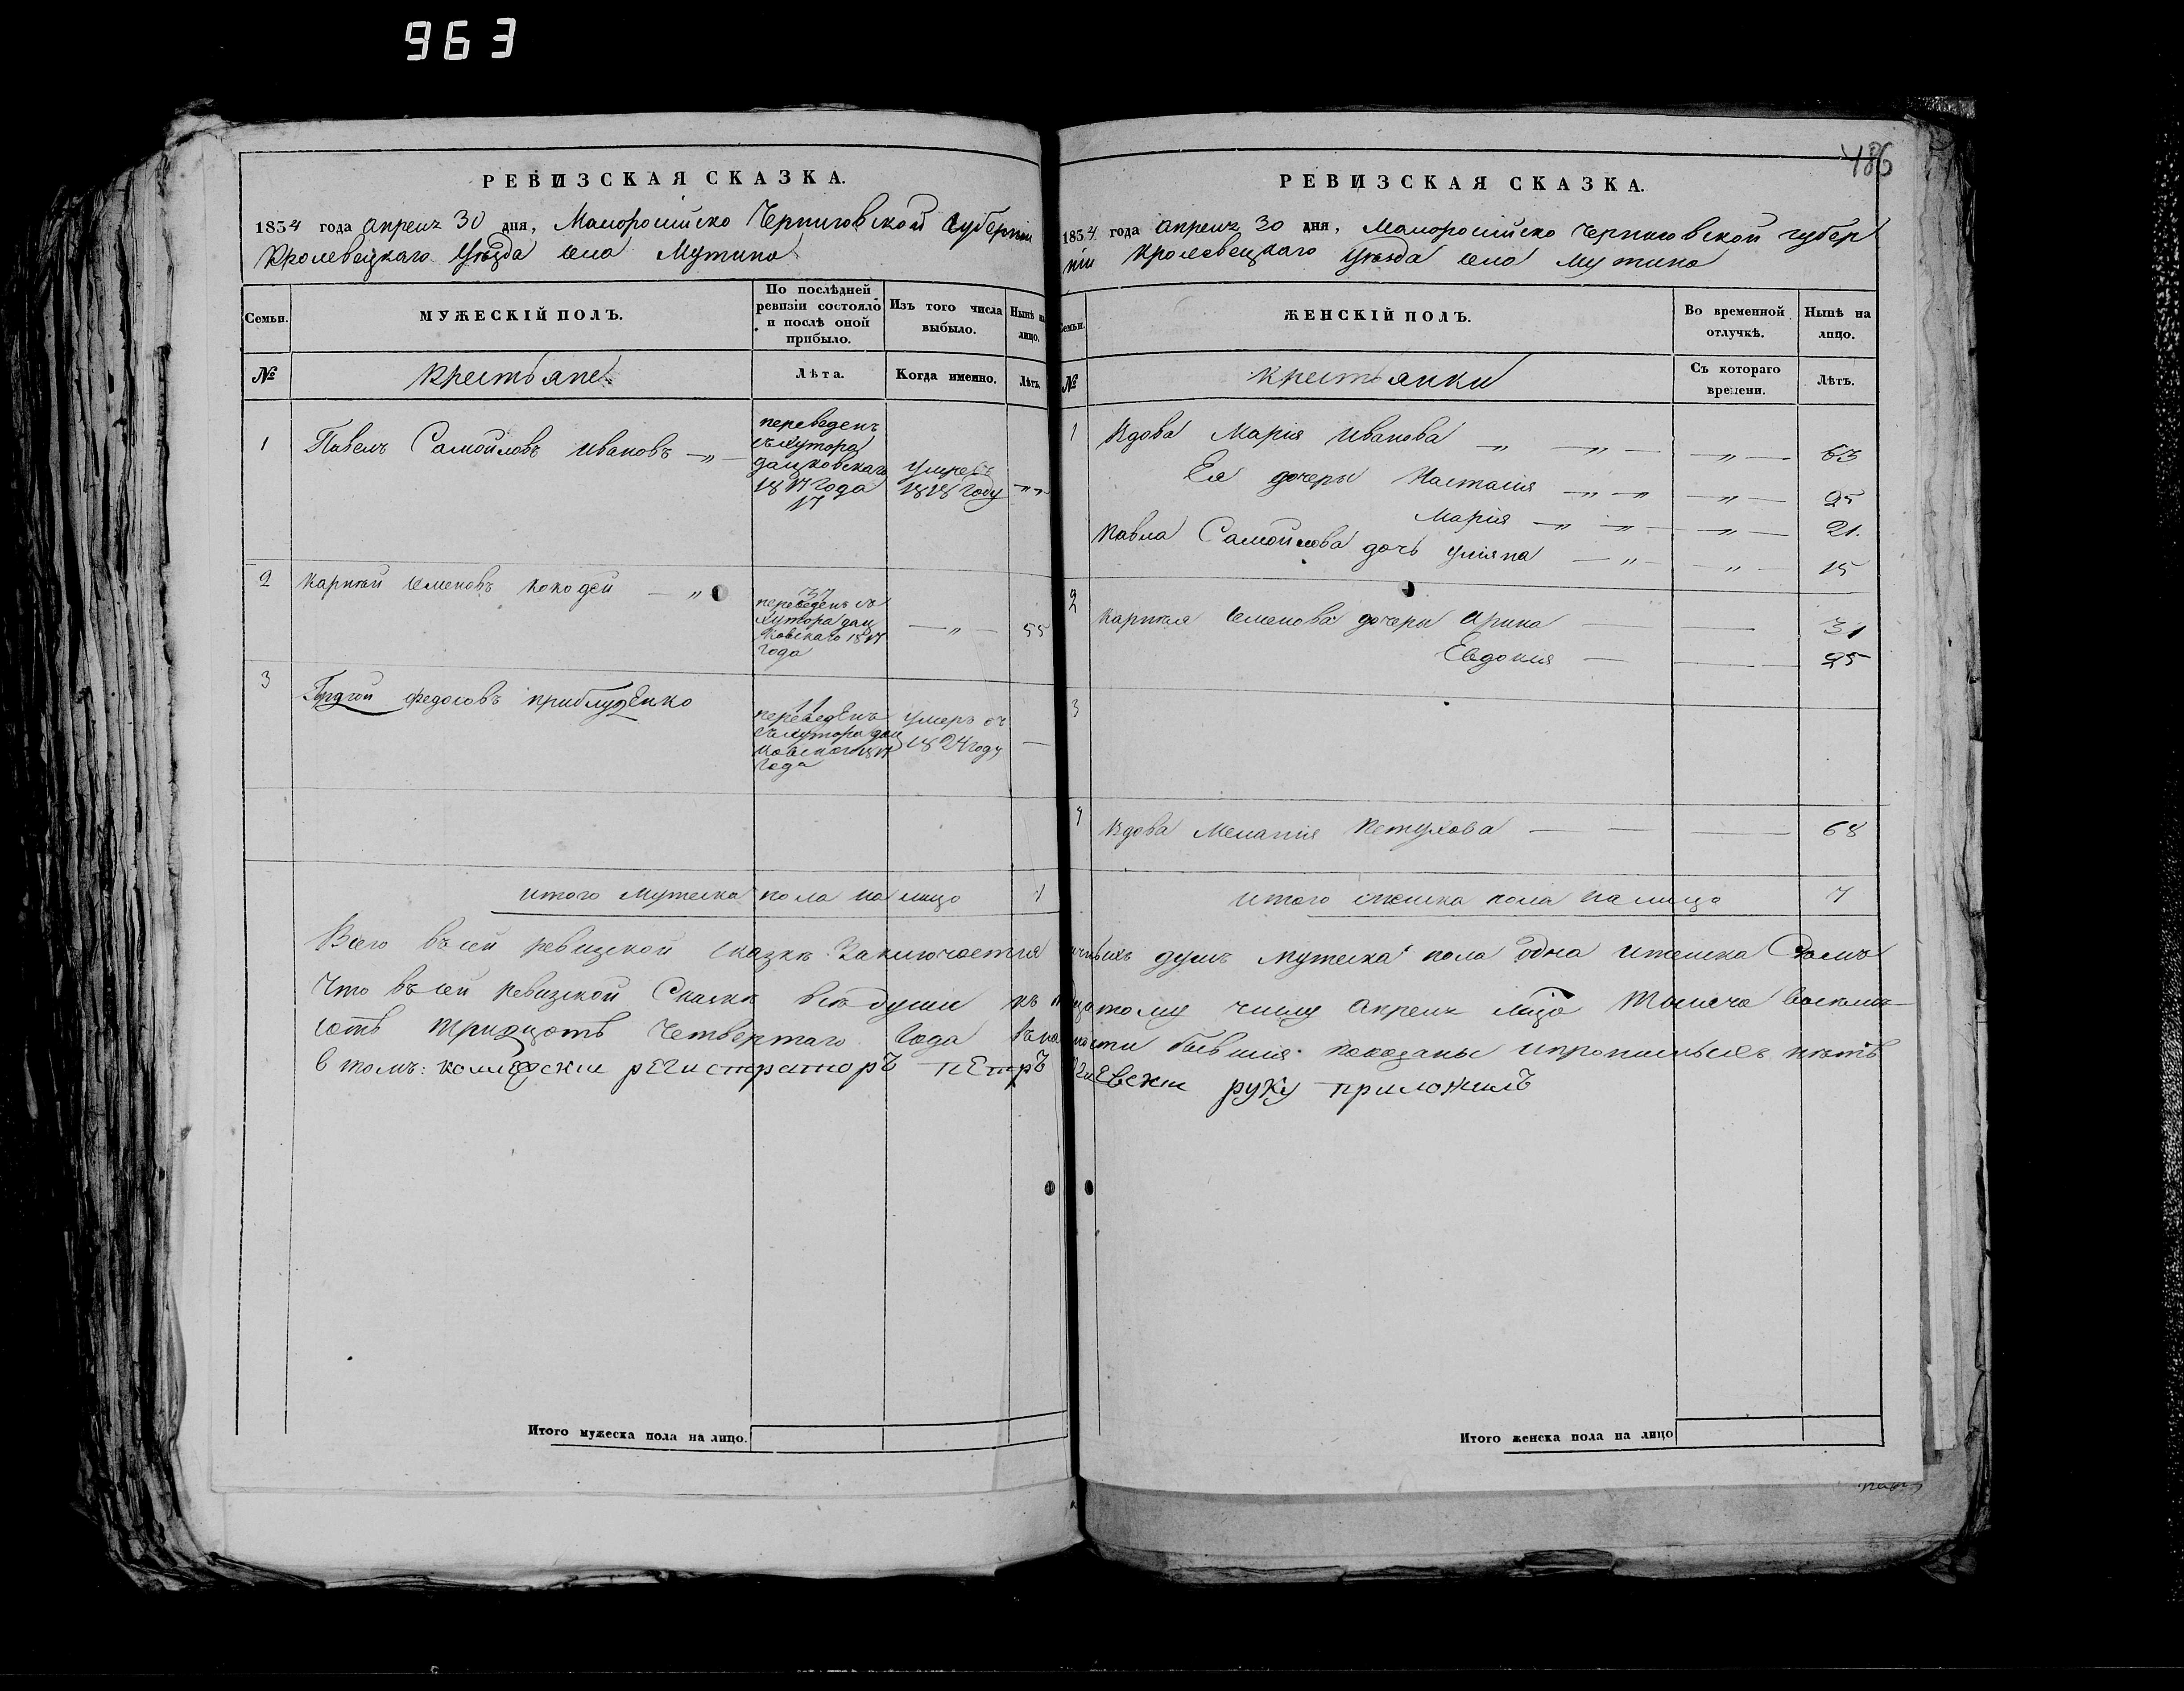 963
РЕВИЗСКАЯ СКАЗКА.
1834 года апреля 30 дня, Малоросийско Черниговской Губернии
Кролевецкаго Уезда села Мутина
Семьи.
МУЖЕСКІЙ ПОЛЪ.
По послѣдней ревизіи состояло и послѣ оной прибыло.
Изъ того числа выбыло.
Нынѣ на лицо.
№
Крестьяне
Лѣта.
Когда именно.
Лѣтъ.
1 Павелъ Самойловъ Ивановъ
переведенъ
съ хутора
дацковскаго
1817 года
17
умре въ
1818 году
2 Карпъ Семеновъ
37
переведенъ съ
хутора дац
ковскаго 1817
года
55
3 федосовъ приблуденко
11
переведенъ
съ хутора дац
ковскаго 1817
года
умеръ въ
1824 году
итого мужеска пола на лицо 1
Итого мужеска пола на лицо.
486
РЕВИЗСКАЯ СКАЗКА.
1834 года апреля 30 дня, Малоросийско Черниговской губер
нии Кролевецкаго Уезда села Мутина
Семьи.
ЖЕНСКІЙ ПОЛЪ.
Во временной отлучкѣ.
Нынѣ на лицо.
№
крестьянки
Съ котораго времени.
Лѣтъ.
1 Вдова Марія Иванова 63
Ея дочери Настасія 25
Марія 21.
Павла Самойлова дочь Уліяна 15
2 Семенова дочери Арина 31
Евдокия 25
3
4 Вдова Меланія Петухова 68
итого женска пола на лицо 7
Всего въ сей ревизской сказке Заключается душъ мужеска пола одна и женска Семь
Что въ сей Ревизской Сказке все души къ тому числу апреля Тысяча восемь
сотъ тридцать Четвертаго Года въ бывшия показаны и прописныхъ нетъ
в томъ: регистраторъ петръ руку приложилъ
Итого женска пола на лицо